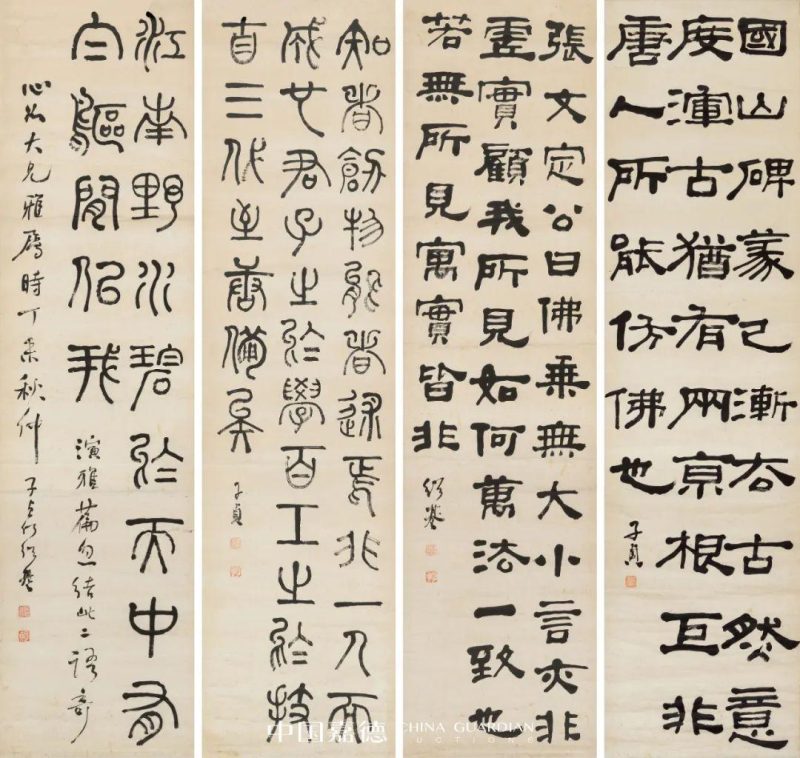 國山碑篆已漸右古然意
度渾古猶有兩京根巨非
唐人所能仿佛也
子貞
張文定公曰佛乘無大小言亦非
虛實顧我所見如何萬法一致也
若無所見寓實皆非
紹基
知者創物能者述焉非一人而
成也君子之於學百工之於技
自三代至唐備矣
子貞
江南野水碧於天中有
白鷗閒似我
演雅篇忽結此二語奇
大兄雅屬時丁未秋仲 子貞何紹基
中国嘉德 CHINA GUARDIAN